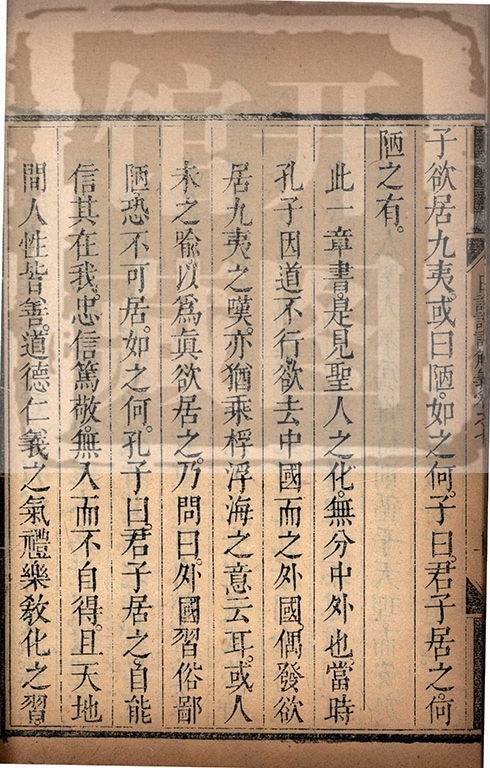 子欲居九夷。或曰陋。如之何。子曰。君子居之。何
陋之有。
此一章書。是見聖人之化。無分中外也。當時
孔子因道不行。欲去中國而之外國。偶發欲
居九夷之嘆。亦猶乘桴浮海之意云耳。或人
未之喻。以為真欲居之。乃問曰。外國習俗鄙
陋。恐不可居。如之何。孔子曰。君子居之。自能
信其在我。忠信篤敬。無入而不自得。且天地
間人性皆善。道德仁義之氣。禮樂教化之習